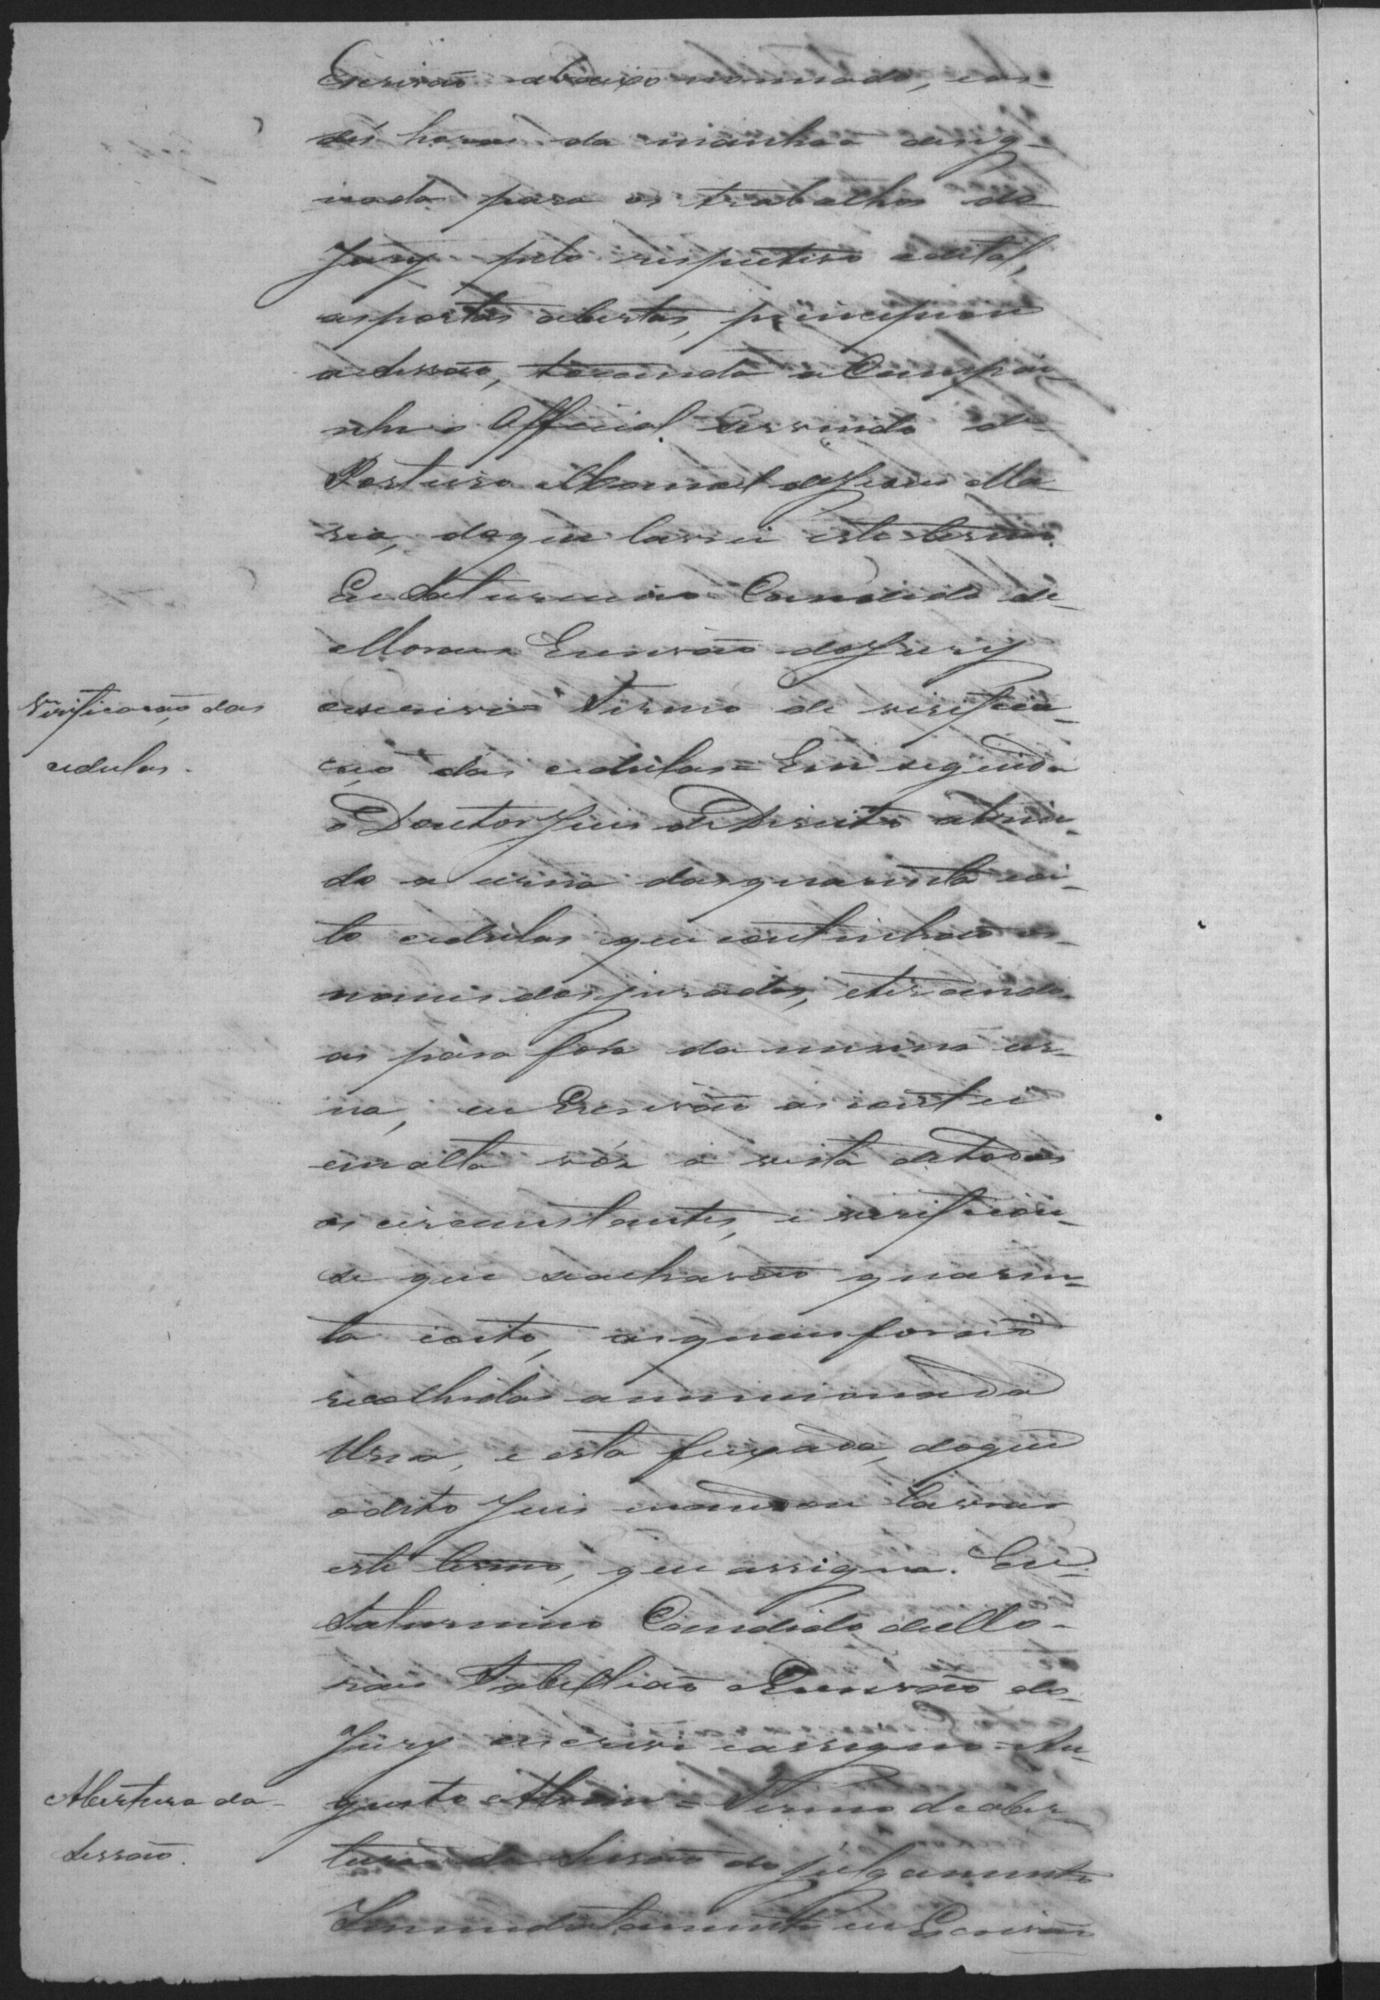 Escrivão abaixo nomeado, eas
des horas da manhãa desig-
nada para os trabalhos do
Jury pelo respectivo edital,
asportas abertas, principiou
a Sessão, tocando a Campai-
nha o Official servindo de
Porteiro Manoel de Jesus Ma-
ria, doque lavrei este termo.
Eu Saturnino Candido de
Moraes Escrivão do Jury
escrivi = Termo de verifica-
Verificação das
cedulas.
ção das cedulas = Em seguida
o Doutor Juis de Direito abrin-
do a urna dasquarenta eoi-
to cedulas que continhão os
nomes dos jurados, etirando
as para fora da mesma ur-
na, eu Escrivão as contei
emalta vóz a vista detodos
os circunstantes, e verificou-
se que seachavão quaren-
ta eoito, asquaes forão
recolhidas amencionada
Urna, e esta fexada, doque
odito Juis mandou lavrar
este termo, que assigna. Eu
Saturnino Candido de Mo-
raes Tabellião e Escrivão do
Jury escrivi eassigno = Au-
gusto = Termo de aber
Abertura da
Sessão.
tura da Sessão do julgamento
Immediatamente eu Escrivão